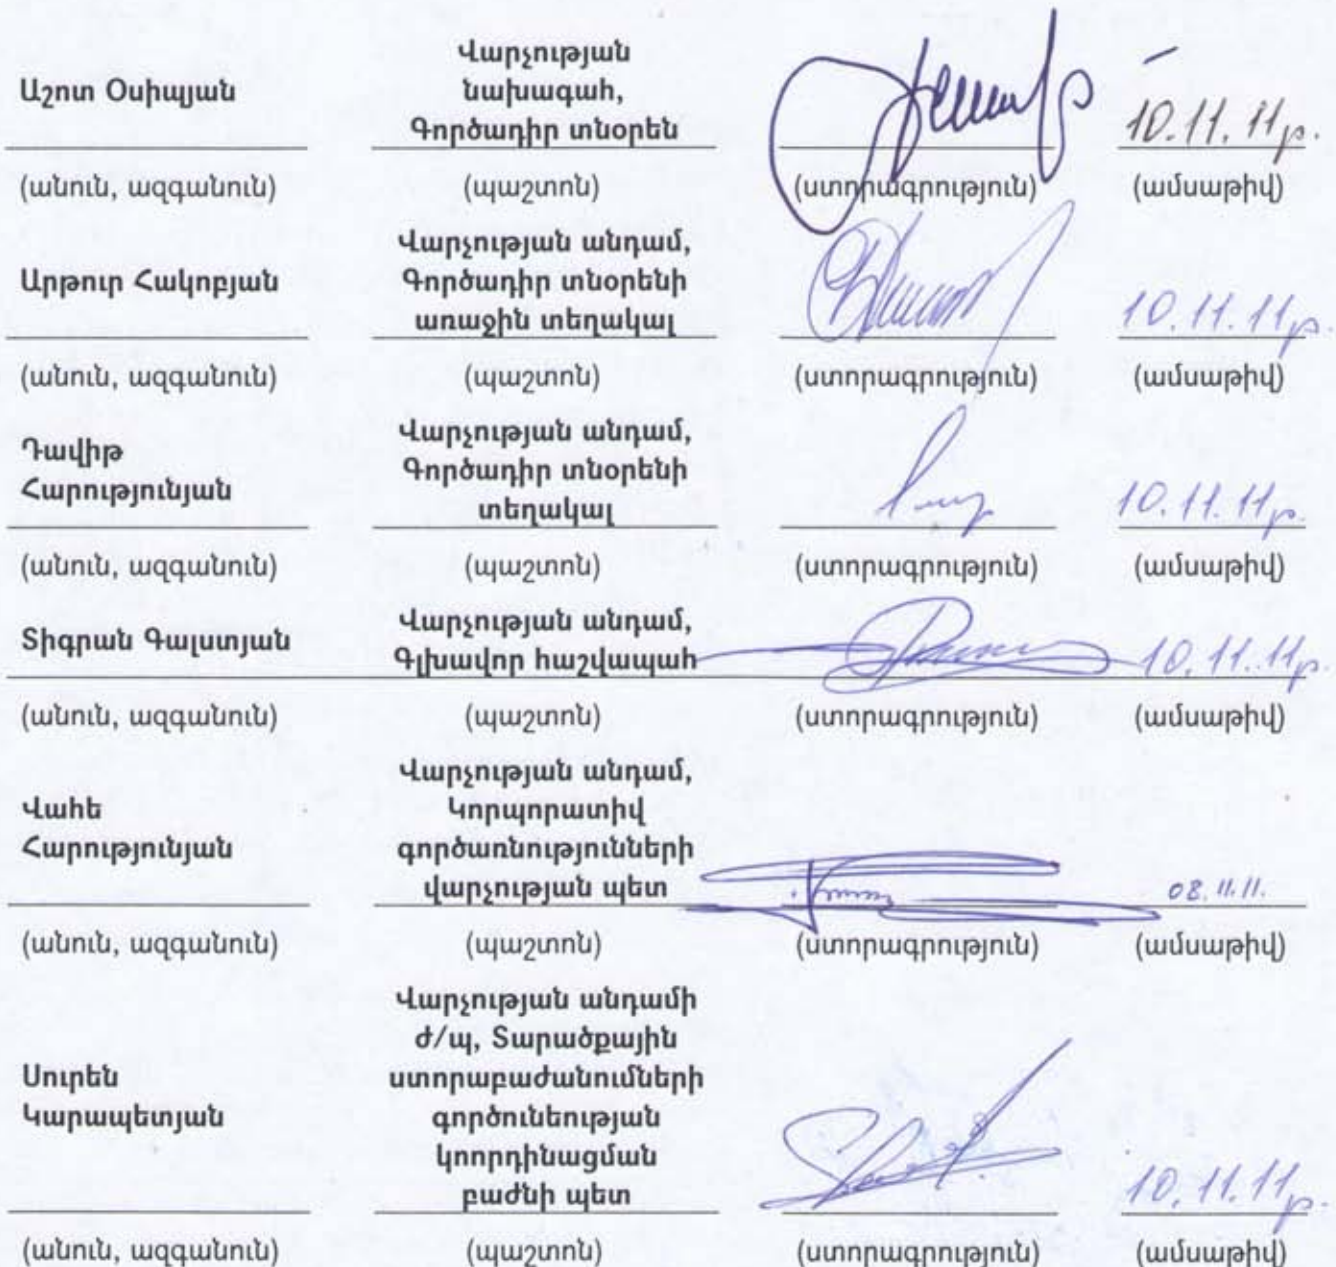 Աշոտ Օսիպյան
Վարչության
նախագահ,
Գործադիր տնօրեն
10.11.11թ.
(անուն, ազգանուն) (պաշտոն) (ստորագրություն) (ամսաթիվ)
Արթուր Հակոբյան
Վարչության անդամ,
Գործադիր տնօրենի
առաջին տեղակալ
10.11.11թ.
(անուն, ազգանուն) (պաշտոն) (ստորագրություն) (ամսաթիվ)
Դավիթ
Հարությունյան
Վարչության անդամ,
Գործադիր տնօրենի
տեղակալ
10.11.11թ.
(անուն, ազգանուն) (պաշտոն) (ստորագրություն) (ամսաթիվ)
Տիգրան Գալստյան
Վարչության անդամ,
Գլխավոր հաշվապահ
10.11.11թ.
(անուն, ազգանուն) (պաշտոն) (ստորագրություն) (ամսաթիվ)
Վահե
Հարությունյան
Վարչության անդամ,
Կորպորատիվ
գործառնությունների
վարչության պետ
08.11.11.
(անուն, ազգանուն) (պաշտոն) (ստորագրություն) (ամսաթիվ)
Սուրեն
Կարապետյան
Վարչության անդամի
ժ/պ, Տարածքային
ստորաբաժանումների
գործունեության
կոորդինացման
բաժնի պետ
10.11.11թ.
(անուն, ազգանուն) (պաշտոն) (ստորագրություն) (ամսաթիվ)